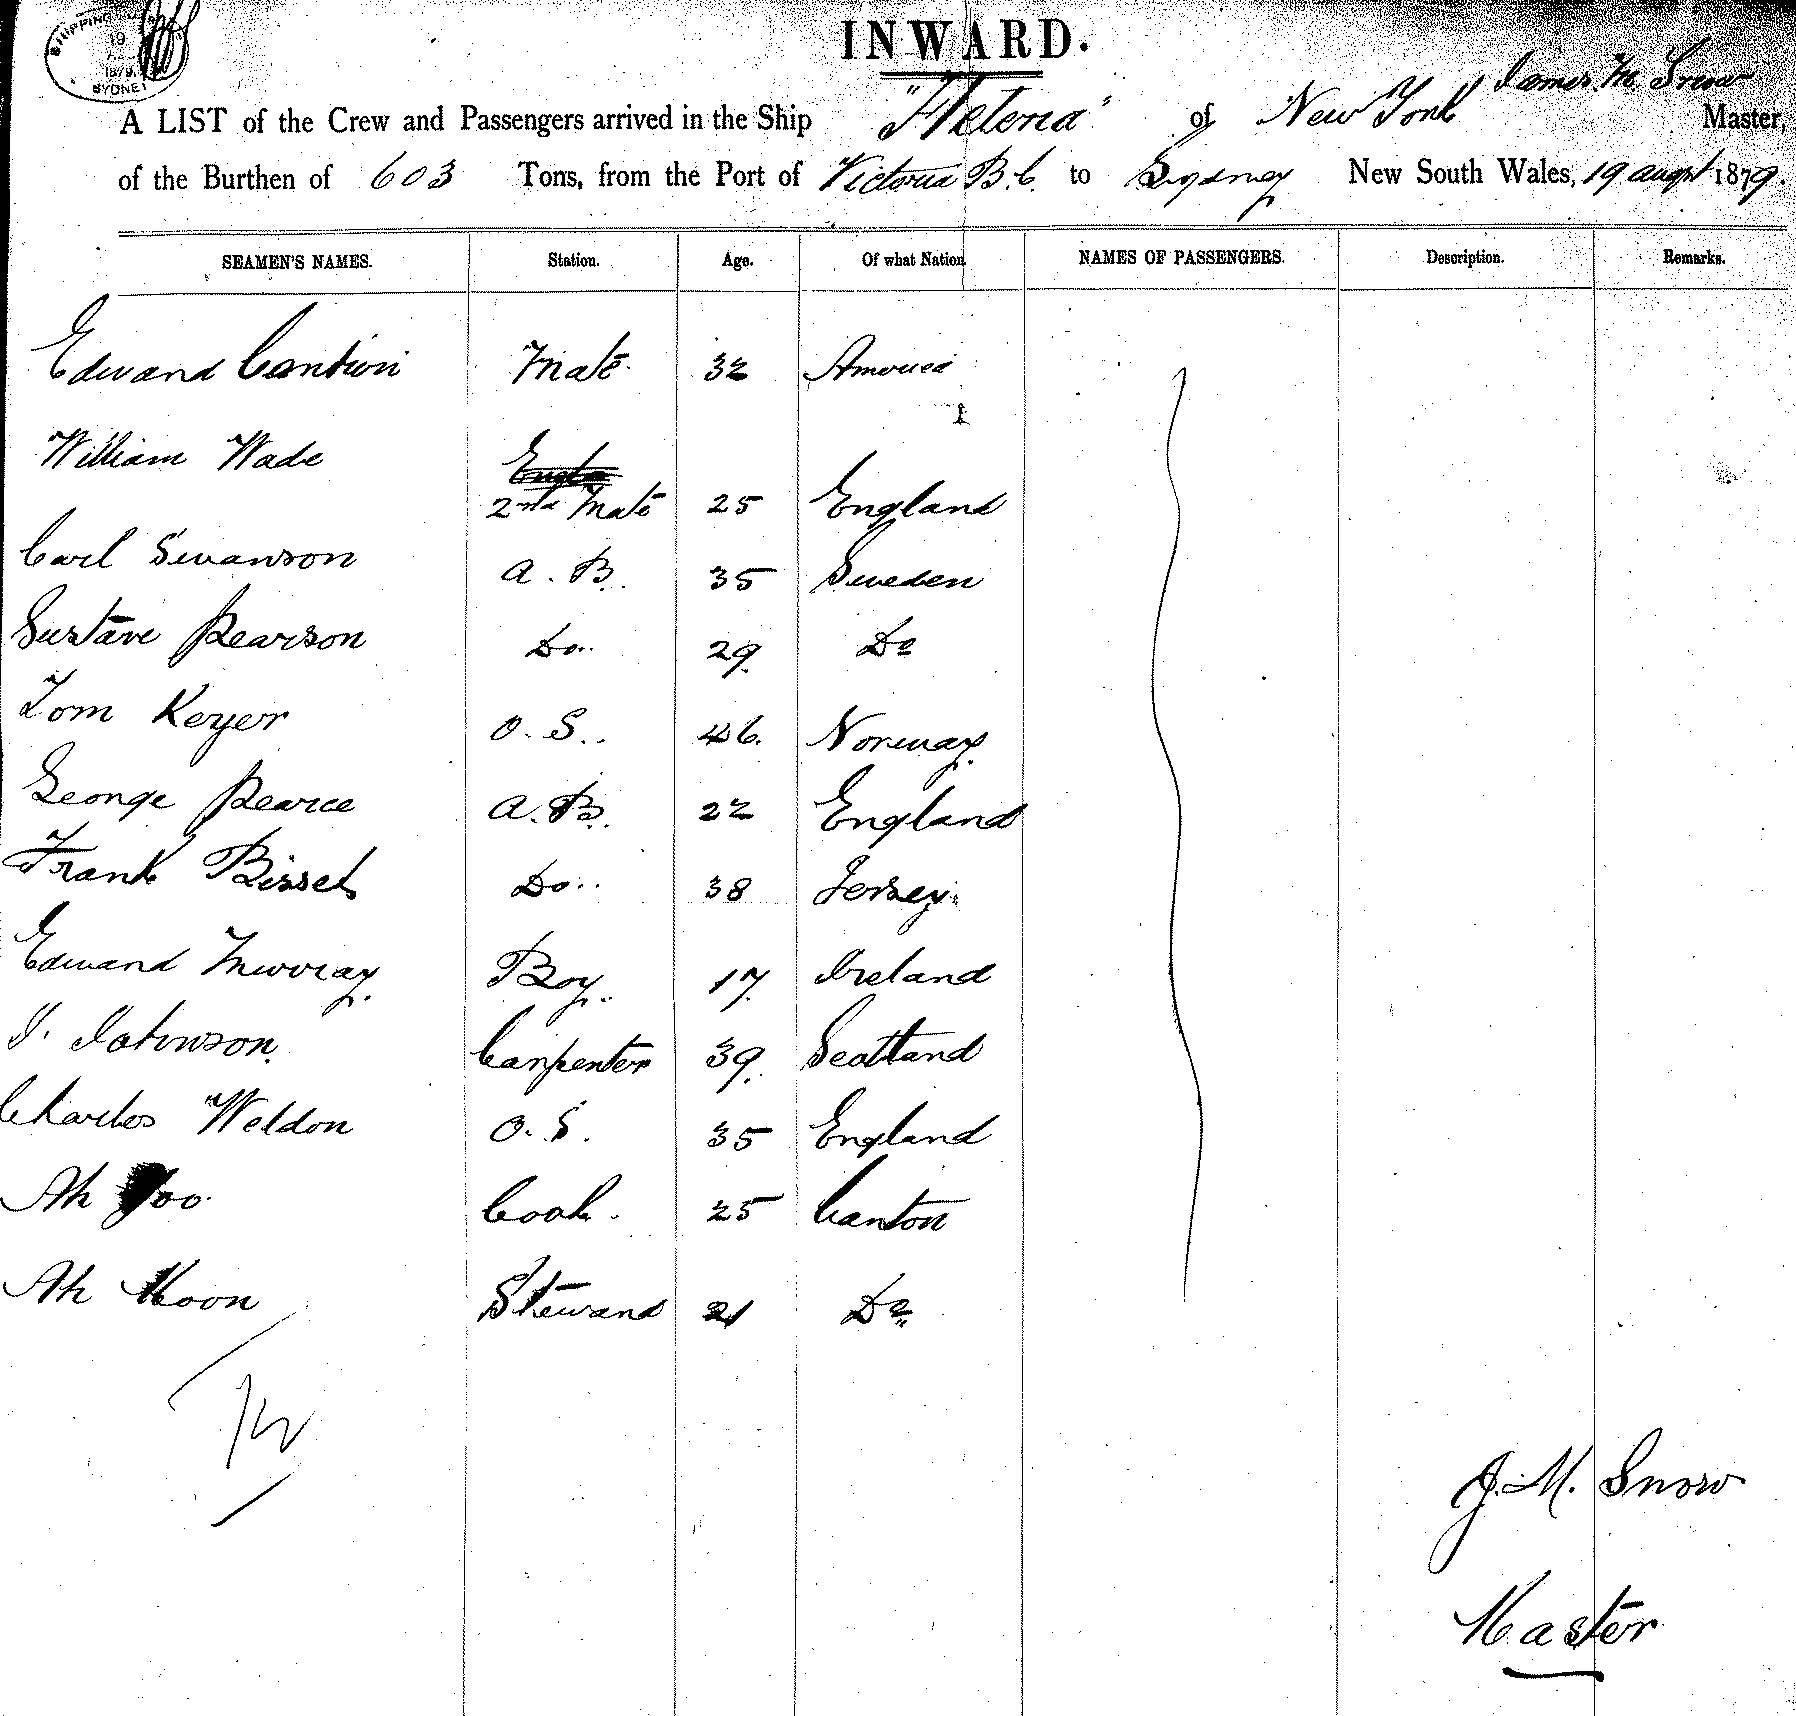 SHIPPING
19
1879.
SYDNEY
INWARD.
James M. Snow
A LIST of the Crew and Passengers arrived in the Ship of New York Master,
of the Burthen of 603 Tons, from the Port of Victoria B.C. to Sydney New South Wales, 19 augst 1879.
SEAMEN'S NAMES. Station. Age. Of what Nation NAMES OF PASSENGERS. Description. Remarks.
Edward Mate 32 America
William Wade
2nd Mate 25 England
Carl Swanson A. B. 35 Sweden
Gustave Pearson Do.. 29. Do
Tom Keyer O. S.. 46. Norway.
George Pearce A. B. 22 England
Frank Bisset Do.. 38 Jersey.
Edward Murray. Boy.. 17. Ireland
J. Johnson. Carpenter 39. Scotland
Charles Weldon O. S. 35 England
Ah Cook. 25 Canton
Ah Moon Steward 21 Do
12
J. M. Snow
Master